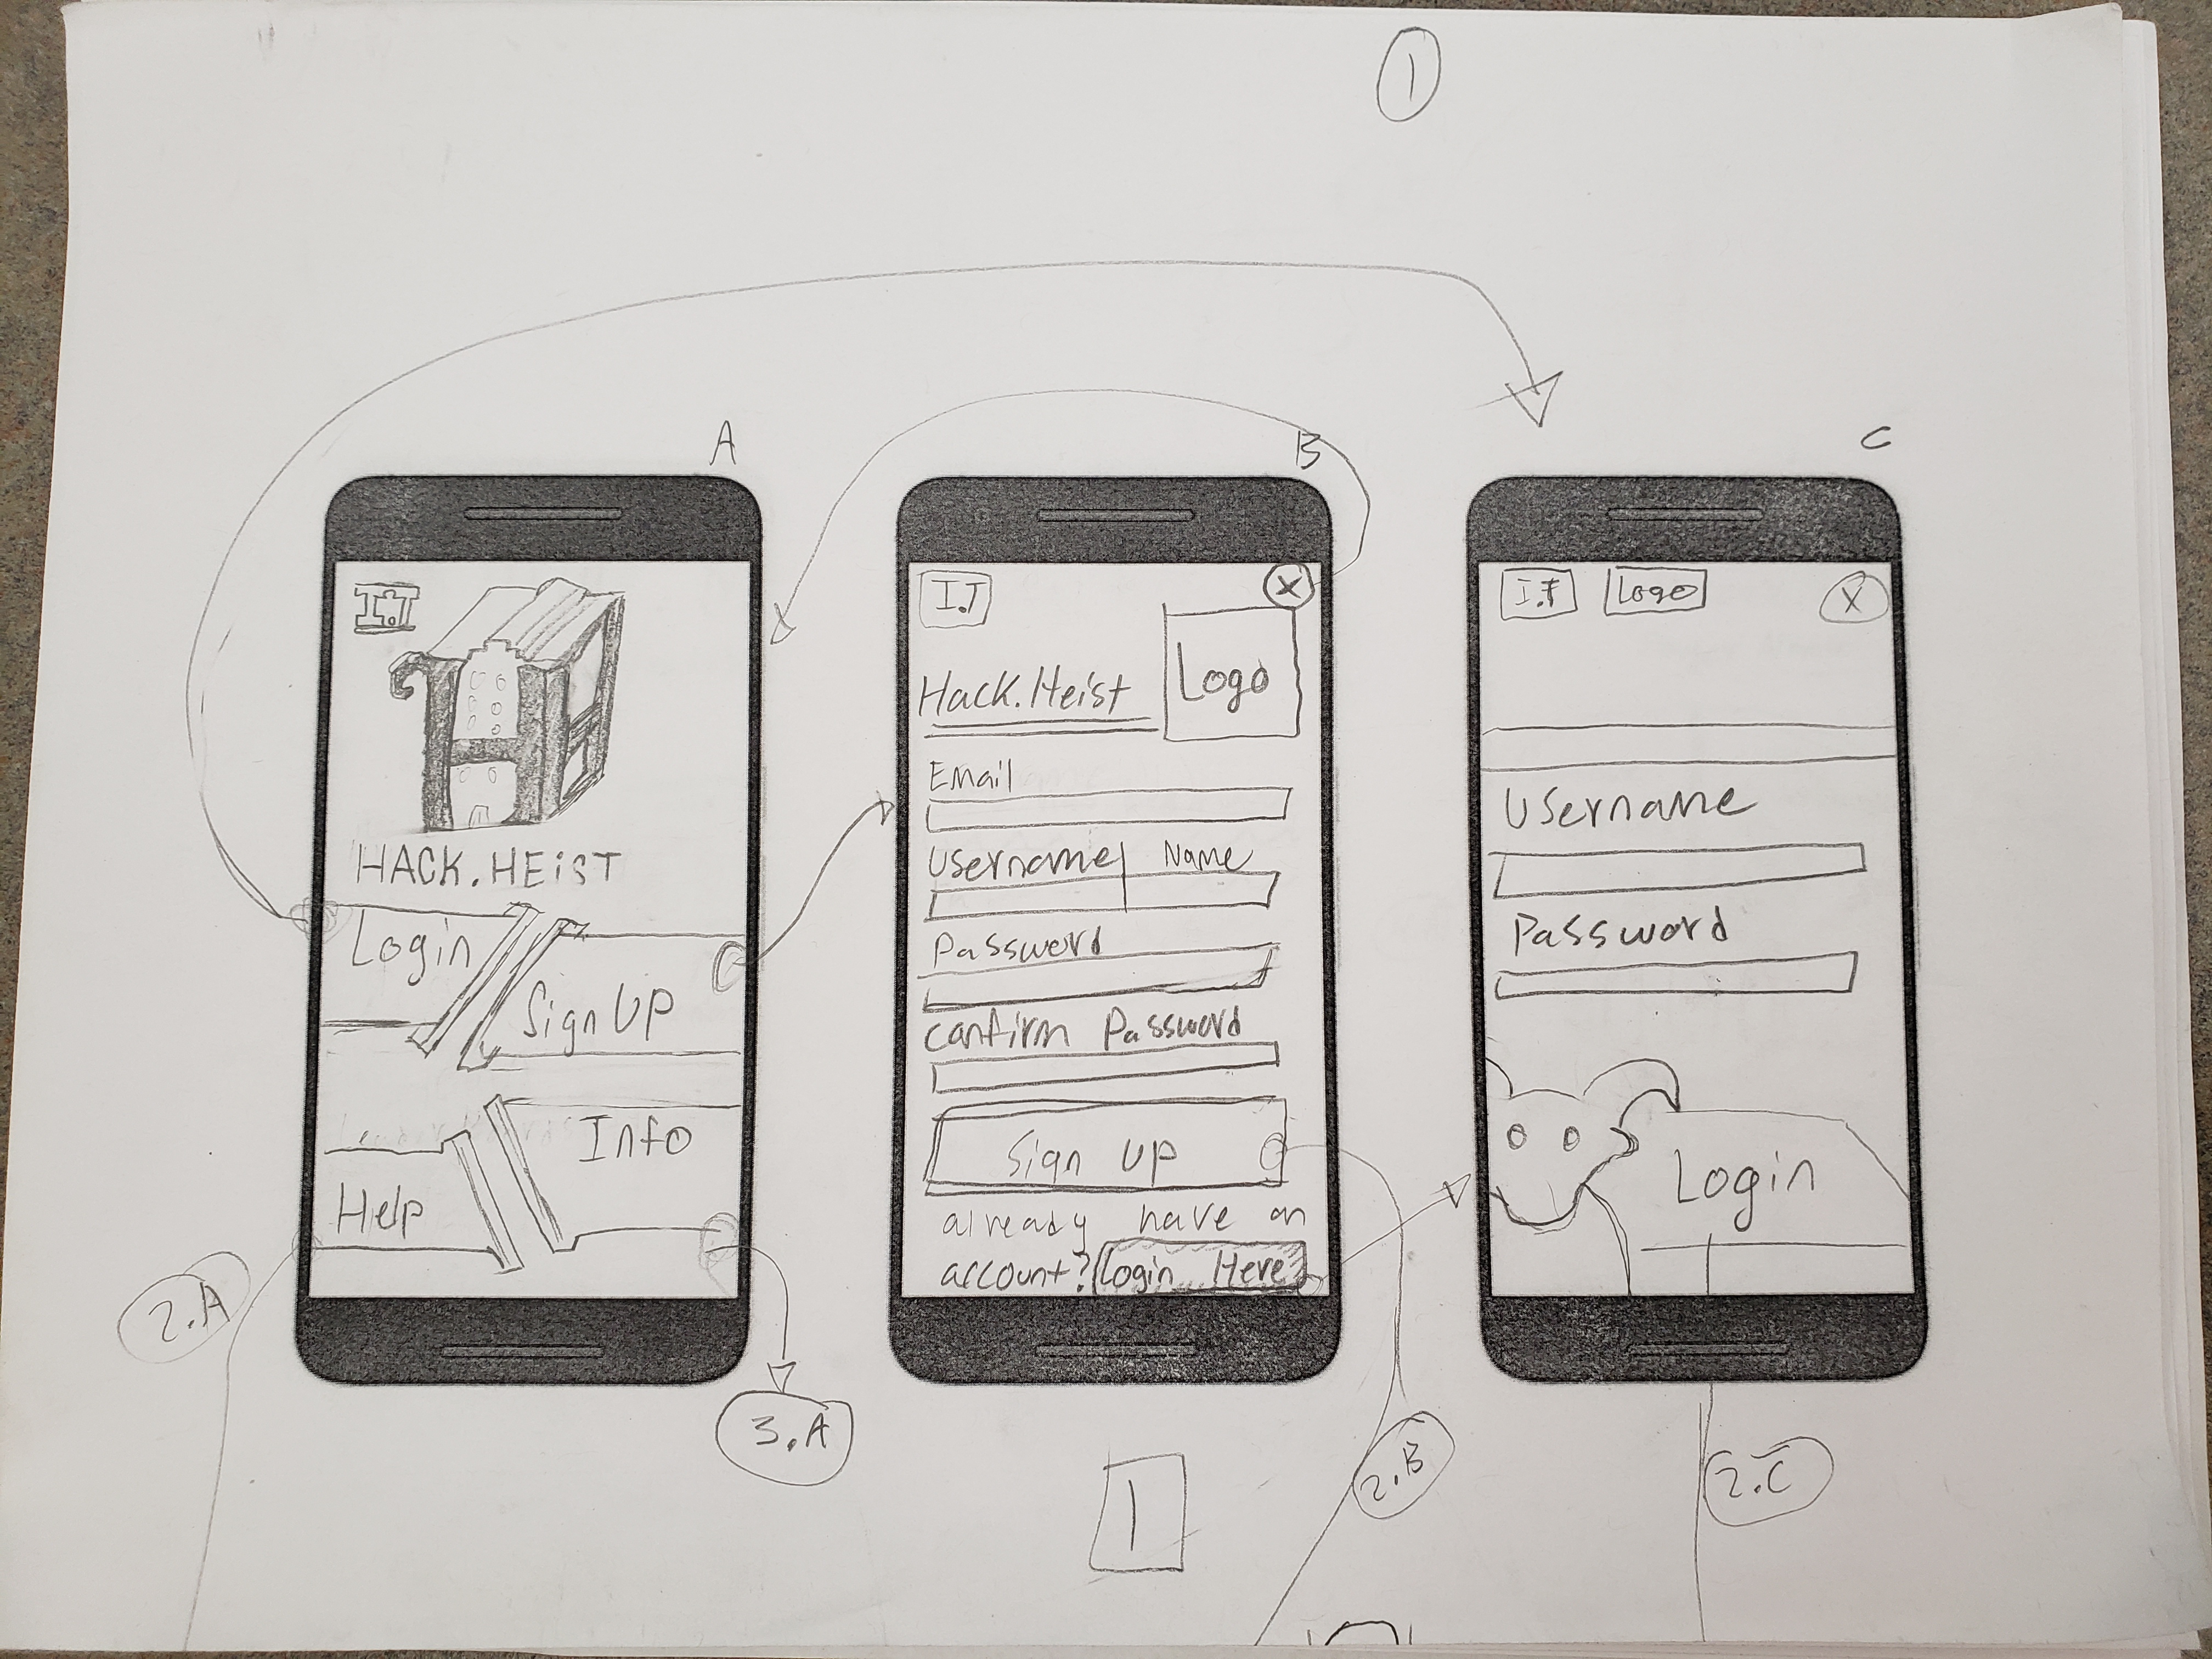 1
A
I.T
HACK.HEiST
Login
Sign Up
Help
Info
2.A
3.A
B
I.T
X
Hack.Heist
Logo
Email
Username Name
Password
Canfirm Password
Sign Up
already have an
account? login Here
2.B
C
Logo
X
Username
Password
Login
2.C
1